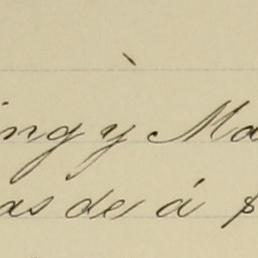 ing y Ma
as de á $